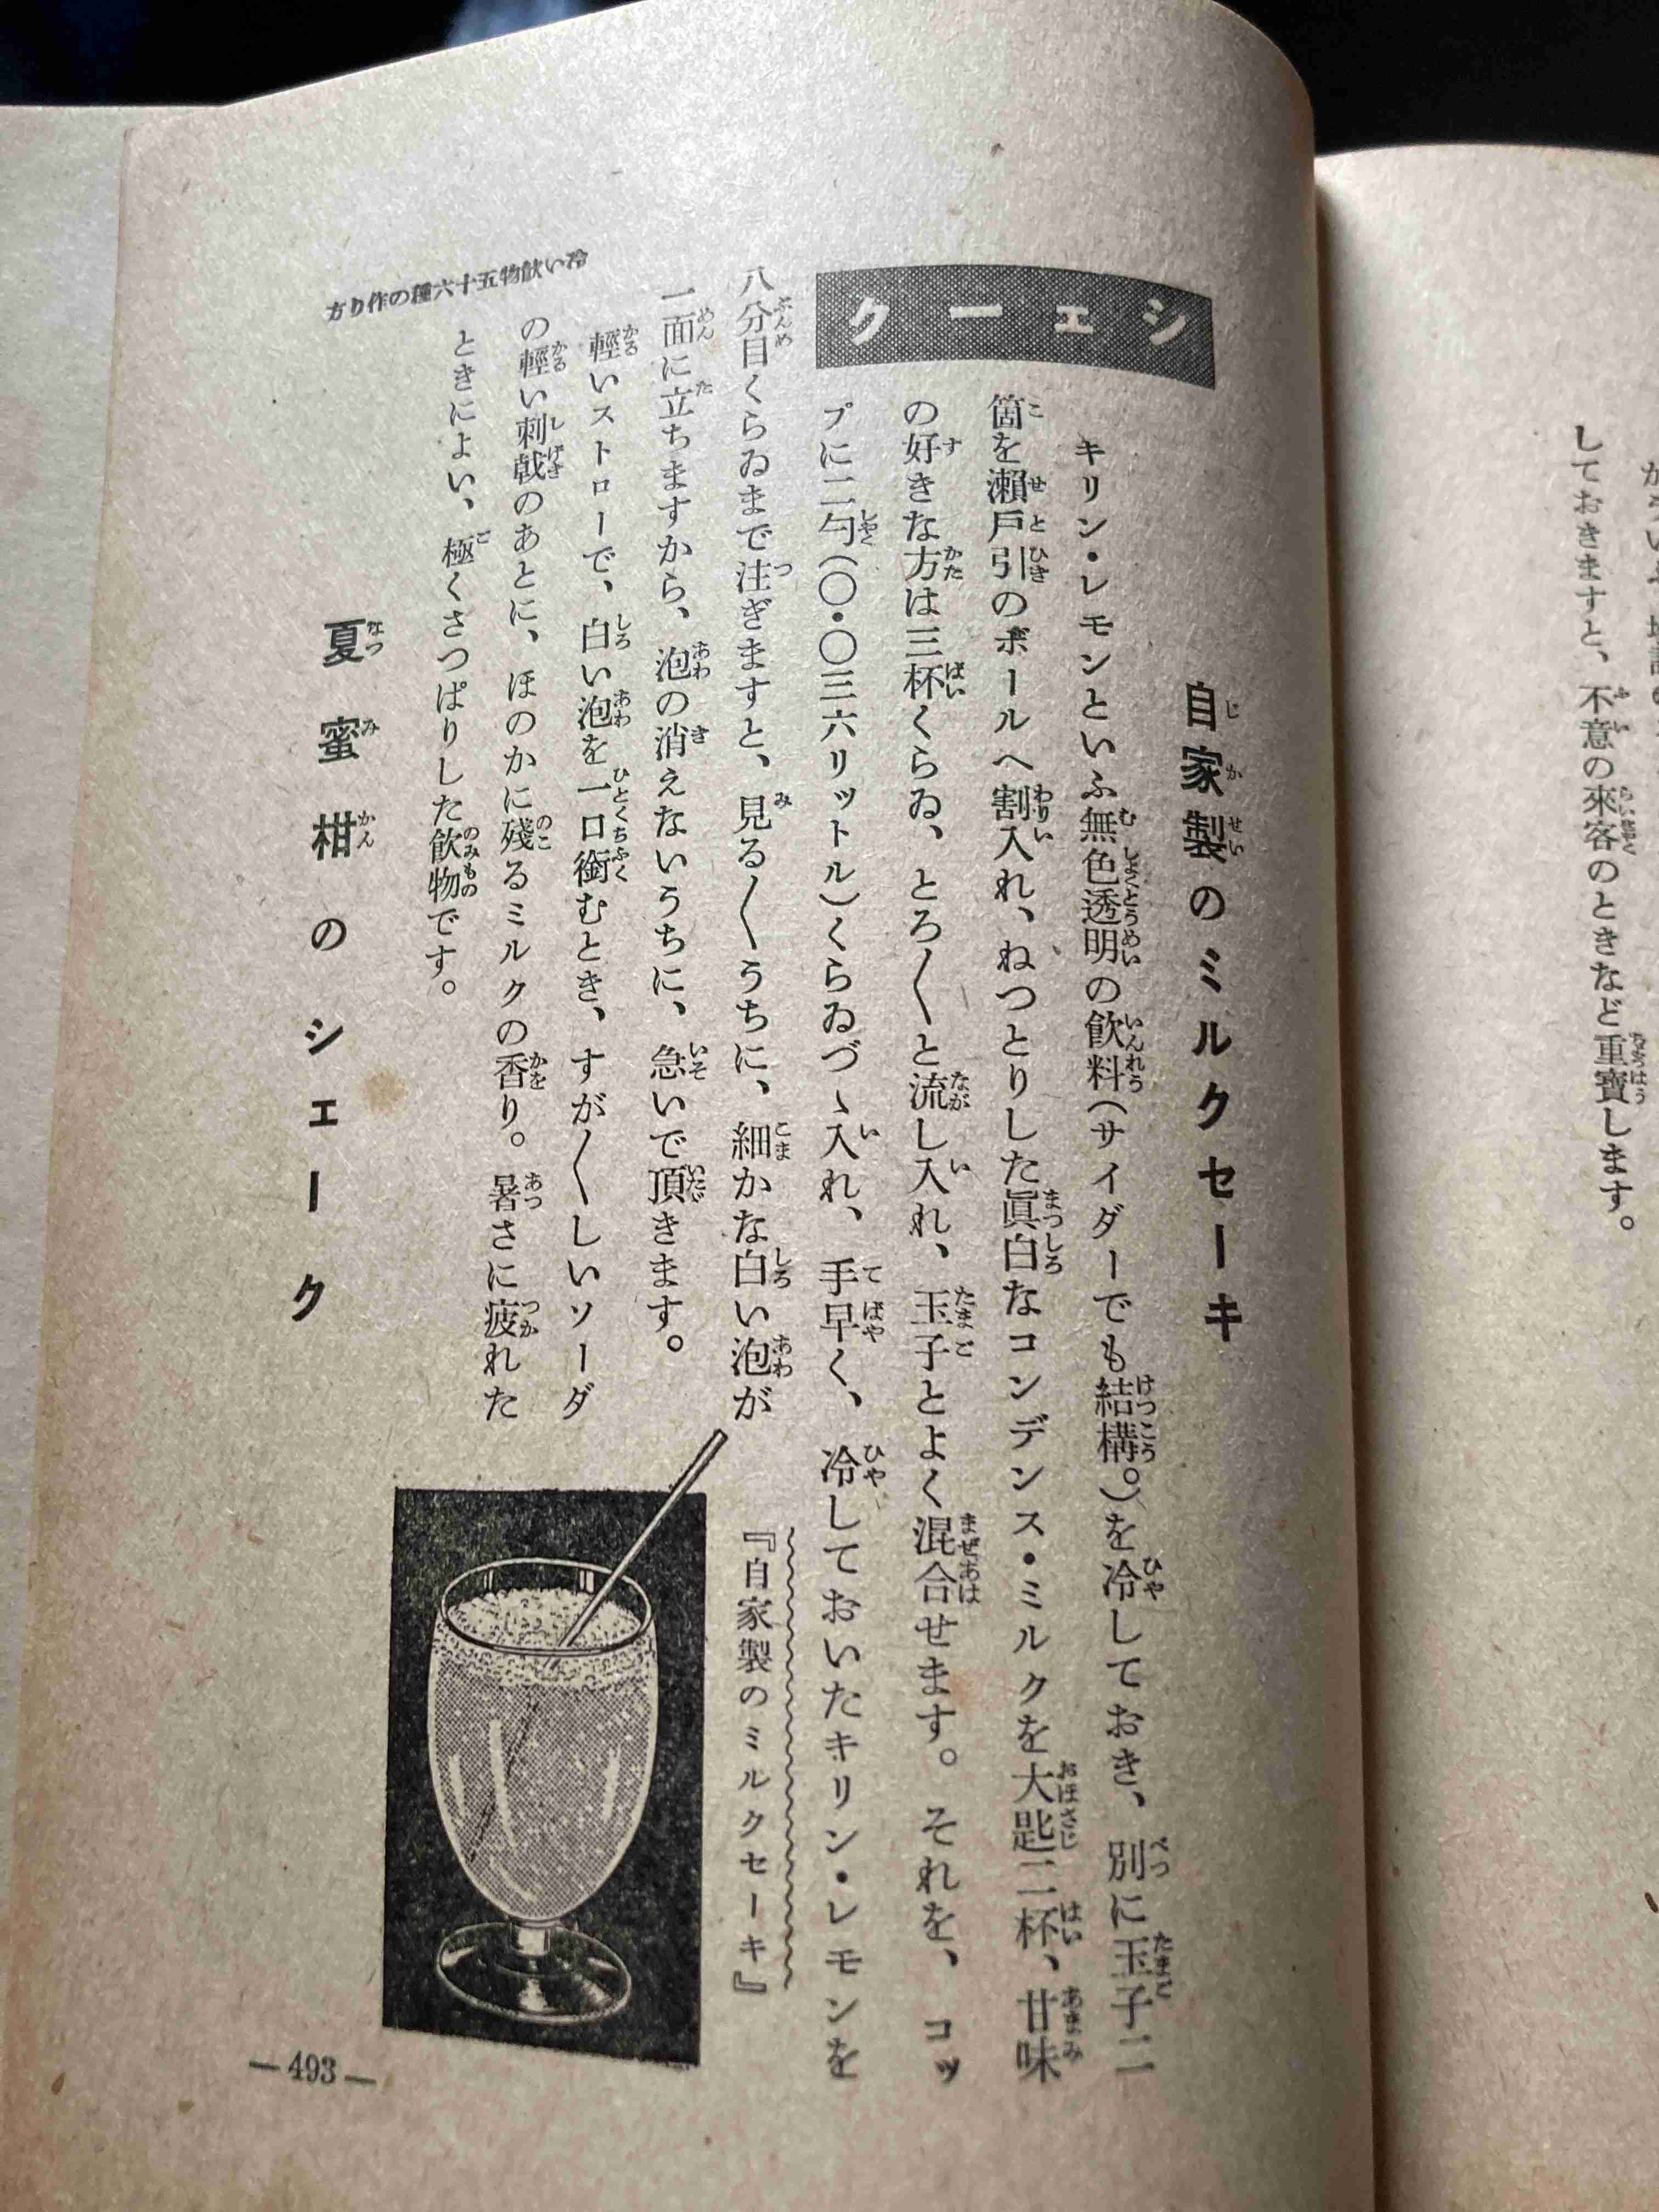 しておきますと、不意の來客のときなど重寶します。
シェーク
自家製のミルクセーキ
キリン・レモンといふ無色透明の飮料(サイダーでも結構。)を冷しておき、別に玉子二
箇を瀨戸引のボールへ割入れ、ねつとりした眞白なコンデンス・ミルクを大匙二杯、甘味
の好きな方は三杯くらゐ、とろ〱と流し入れ、玉子とよく混合せます。それを、コッ
プに二勺(〇・〇三六リットル)くらゐづゝ入れ、手早く、冷しておいたキリン・レモンを
八分目くらゐまで注ぎますと、見る〱うちに、細かな白い泡が
一面に立ちますから、泡の消えないうちに、急いで頂きます。
輕いストローで、白い泡を一口銜むとき、すが〱しいソーダ
の輕い刺戟のあとに、ほのかに殘るミルクの香り。暑さに疲れた
ときによい、極くさつぱりした飮物です。
『自家製のミルクセーキ』
夏蜜柑のシェーク
冷い飮物五十六種の作り方
—493—